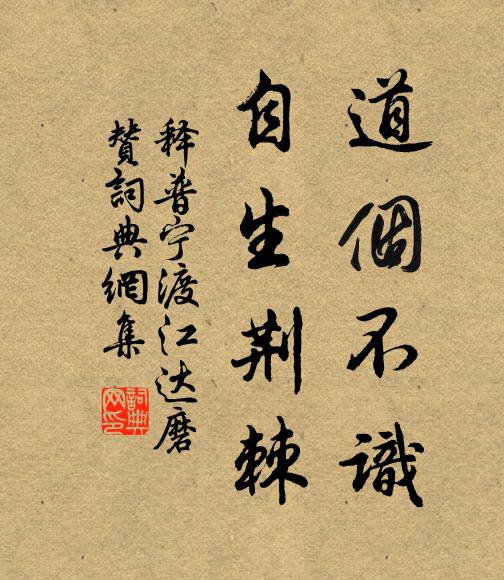 道個不識
自生荆棘
释普宁渡江达磨
贊詞典網集
詞典
网印